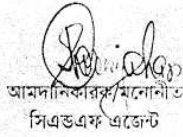 আমদানিকারক/মনোনীত
সিএন্ডএফ এজেন্ট